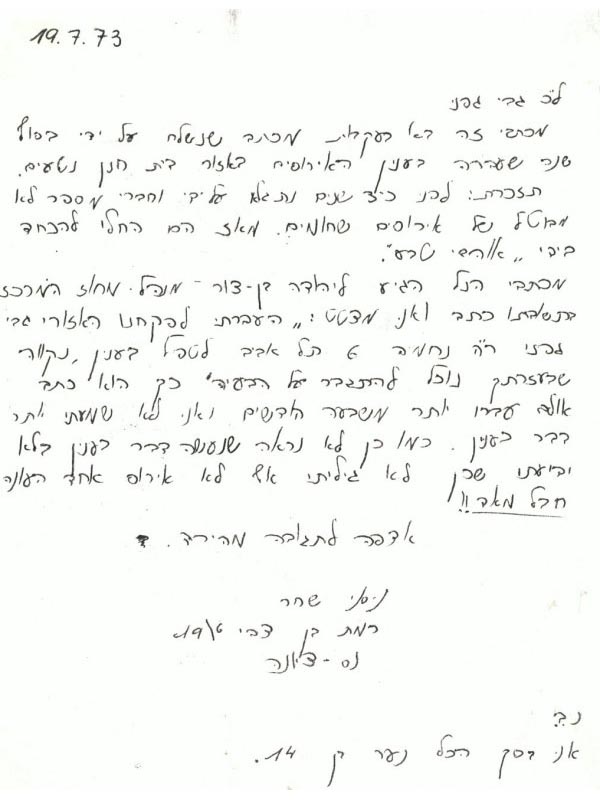 19.7.73
לכ' גבי גפני
מכתבי זה בא בעקבות מכתב שנשלח על ידי בסוף
שנה שעברה בענין האירוסים באזור בית חנן נטעים.
תזכורת: לפני כיצד שנים נתגלו על ידי וחברי מספר לא
מבוטל של אירוסים שחומים. מאז הם החלו להכחד
בידי "אוהבי טבע".
מכתבי הנל הגיע ליהודה בן-צור - מנהל מחוז המרכז
בתשובתו כתב ואני מצטט: "העברתי לפקחנו האזורי גבי
גפני רח' נחמיה 6 תל אביב לטפל בענין, נקווה
שבעזרתך נוכל להתגבר על הבעיה" כך הוא כתב
אולם עברו יותר משבעה חדשים ואני לא שמעתי יותר
דבר בענין. כמו כן לא נראה שנעשה דבר בענין בלא
ידיעתי שכן לא גיליתי אף לא אירוס אחד העונה
חבל מאד!!
אצפה לתגובה מהירה.
ניסני שחר
רמת בן צבי 19/6
נס-ציונה
נ.ב.
אני בסך הכל נער בן 14.